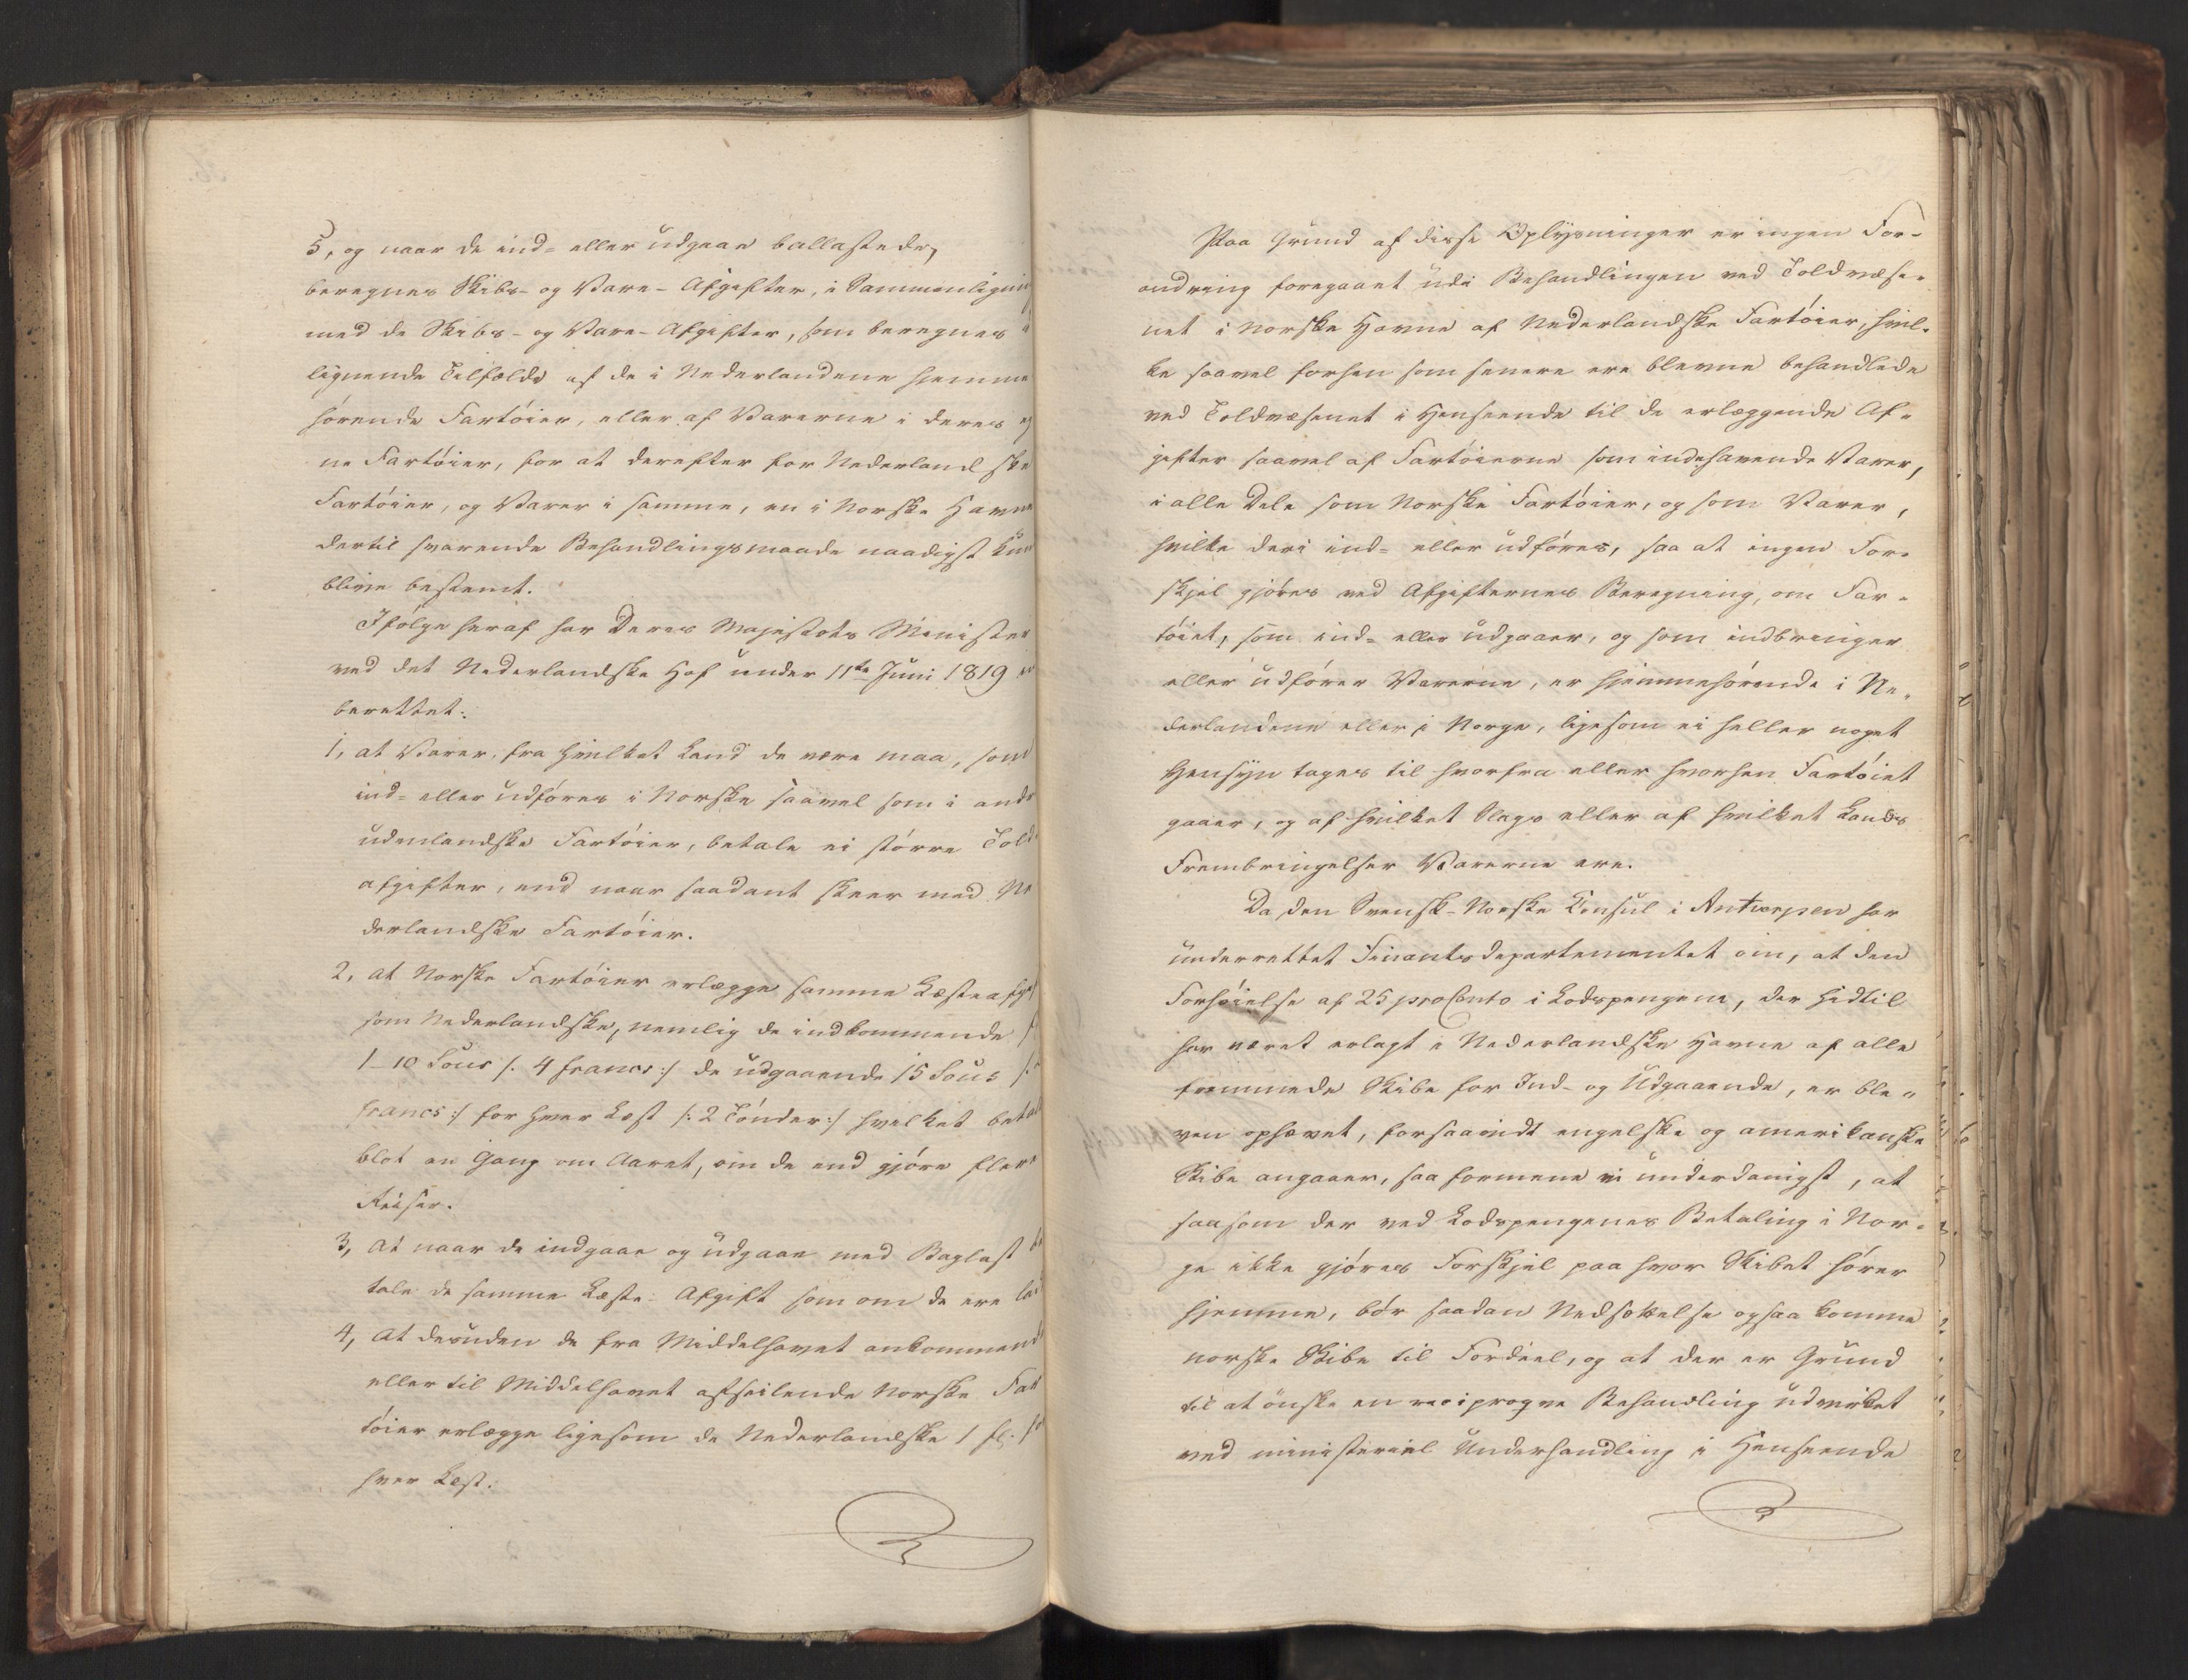 5, og naar de ind- eller udgaae ballastede,
beregnes Skibs- og Vare-Afgifter, i Sammenligning
med de Skibs- og Vare-Afgifter, som beregnes i
lignende Tilfælde af de i Nederlandene hjemme
hørende Fartøier, eller af Varerne i deres eg
ne Fartøier, for at derefter for Nederlandske
Fartøier, og Varer i samme, en i Norske Havne
dertil svarende Behandlingsmaade naadigst kun
blive bestemt.
Ifølge heraf har Deres Majestæts Minister
ved det Nederlandske Hof under 11te Juni 1819
berettet:
1, at Varer, fra hvilket Land de være maa, som
ind- eller udføres i Norske saavel som i andr
udenlandske Fartøier, betale ei større Told
afgifter, end naar saadant skeer med Ne
derlandske Fartøier.
2, at Norske Fartøier erlægge samme Læsteafgif
som Nederlandske, nemlig de indkommende f
1-10 Sous /: 4 francs :/ de udgaaende 15 Sous /:
francs :/ for hver Læst /: 2 Tønder :/ hvilket betal
blot en Gang om Aaret, om de end gjøre flere
Reiser.
3, At naar de indgaae og udgaae med Baglast be
tale de samme Læste-Afgift som om de ere lad
4, At desuden de fra Middelhavet ankommende
eller til Middelhavet afseilende Norske Far
tøier erlægge ligesom de Nederlandske 1 fl: f
hver Læst.
Paa Grund af disse Oplysninger er ingen For-
andring foregaaet udi Behandlingen ved Toldvæse-
net i Norske Havne af Nederlandske Fartøier, hvil-
ke saavel forhen som senere ere blevne behandlede
ved Toldvæsenet i Henseende til de erlæggende Af-
gifter saavel af Fartøierne som indehavende Varer,
i alle Dele som Norske Fartøier, og som Varer,
hvilke deri ind- eller udføres, saa at ingen For-
skjel gjøres ved Afgifternes Beregning, om Far-
tøiet, som ind- eller udgaaer, og som indbringer
eller udfører Varerne, er hjemmehørende i Ne-
derlandene eller i Norge, ligesom ei heller noget
Hensyn tages til hvorfra eller hvorhen Fartøiet
gaaer, og af hvilket Slags eller af hvilket Lands
Frembringelser Varerne ere.
Da den Svensk-Norske Konsul i Antwerpen har
underrettet Finantsdepartementet om, at den
Forhøielse af 25 proCento i Lodspengene, der hidtil
har været erlagt i Nederlandske Havne af alle
fremmede Skibe for Ind- og Udgaaende, er ble-
ven ophævet, forsaavidt engelske og amerikanske
Skibe angaaer, saa formene vi underdanigst, at
saasom der ved Lodspengenes Betaling i Nor-
ge ikke gjøres Forskjel paa hvor Skibet hører
hjemme, bør saadan Nedsættelse ogsaa komme
norske Skibe til Fordeel, og at der er Grund
til at ønske en reciproqve Behandling udvirket
ved ministeriel Underhandling i Henseende